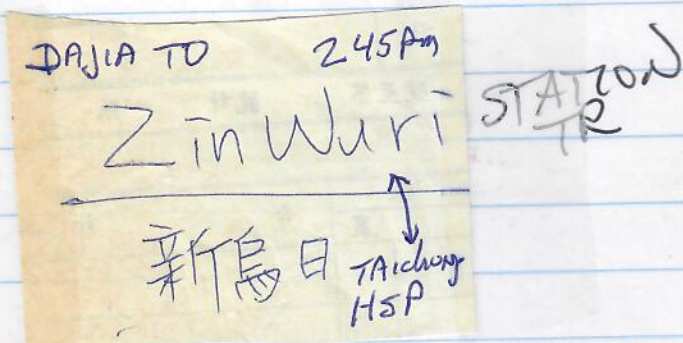 DAJIA TO 245pm
Zin Wuri STATION
TR
新烏日 TAichung
HSP